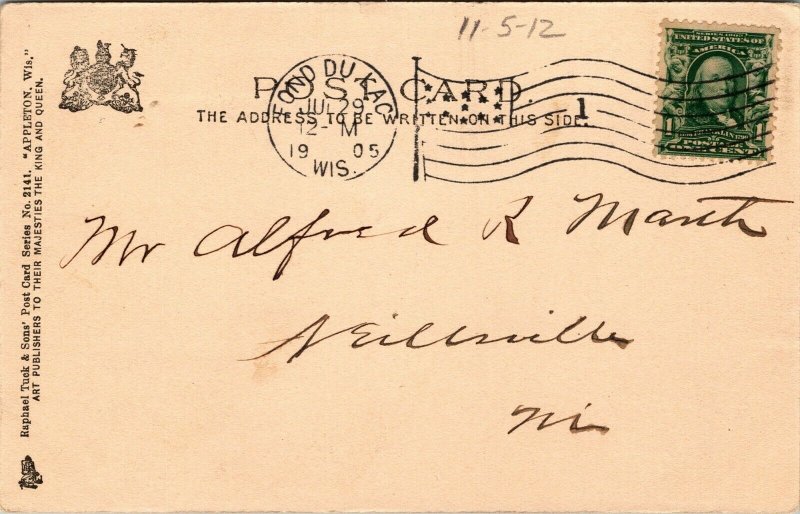 11-5-12
POST CARD.
THE ADDRESS TO BE WRITTEN ON THIS SIDE.
FOND DU LAC
JUL 29
12-M
1905
WIS.
1
SERIES 1902
UNITED STATES OF
AMERICA
Mr Alfred R Marsh
Neillsville
Wis
Raphael Tuck & Sons' Post Card Series No. 2141. "APPLETON, Wis."
ART PUBLISHERS TO THEIR MAJESTIES THE KING AND QUEEN.